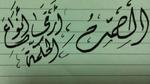 الصَّمْتُ أرقى أنواع
الحكمة